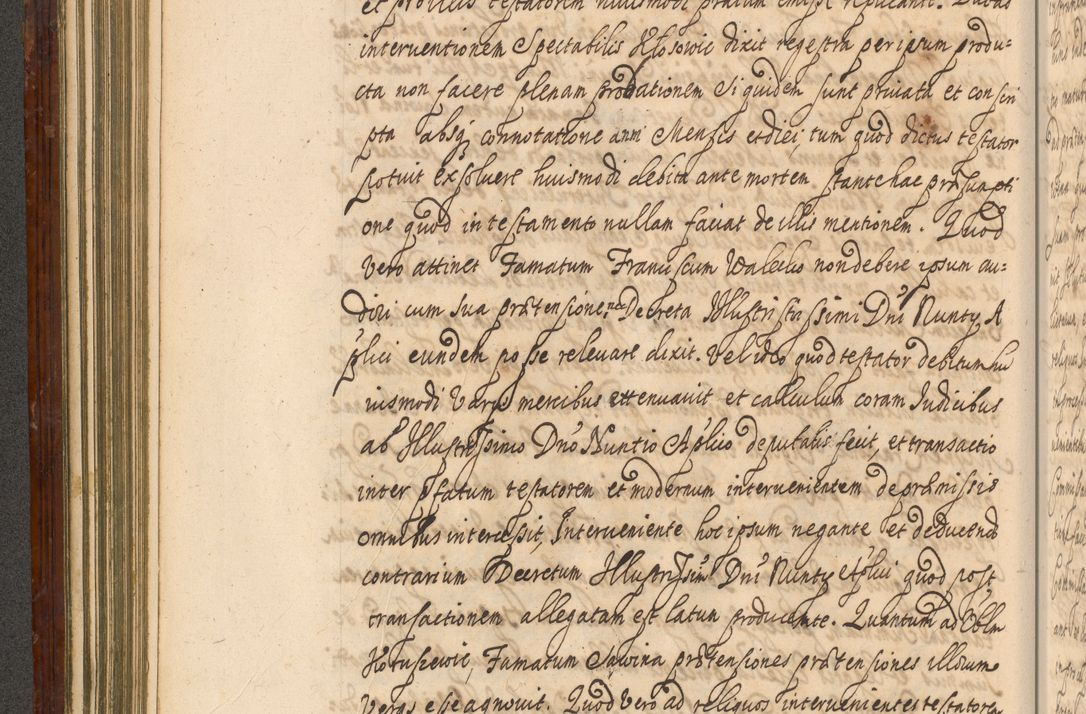 et pro illis testatorem huiusmodi pratum emisse replicante. Quoad
interventionem Spectabilis Kłosowic dixit regestra per ipsum produ=
cta non facere plenam probationem Siquidem sunt privata et conscri
pta absq connotatione anni Mensis et diei, tum quod dictus testator
potuit exsoluere huiusmodi debita ante mortem stante hac præsumpti
one quod in testamento nullam faciat de illis mentionem. Quod
Vero attinet Famatum Franciscum non debere ipsum au=
diri cum sua prætensione, nec Decreta Illustristissimi Dni Nuntij A
plici eundem posse relevare dixit. Vel ideo quod testator debitum hu
iusmodi Varijs mercibus attenuavit et calculum coram Iudicibus
ab Illustrissimo Dno Nuntio Aplico deputatis fecit, et transactio
inter pfatum testatorem et modernum intervenientem de præmissis
omnibus intercessit, Interveniente hoc ipsum negante et
contrarium Decretum Illustrissimi Dni Nuntij Aplici quod post
transactionem allegatam est latum producente. Quantum ad Nblm
Hotuszewic, Famatum Sawina prætensiones prætensiones illorum
Veras esse agnovit. Quod vero ad reliquos intervenientes testatorem